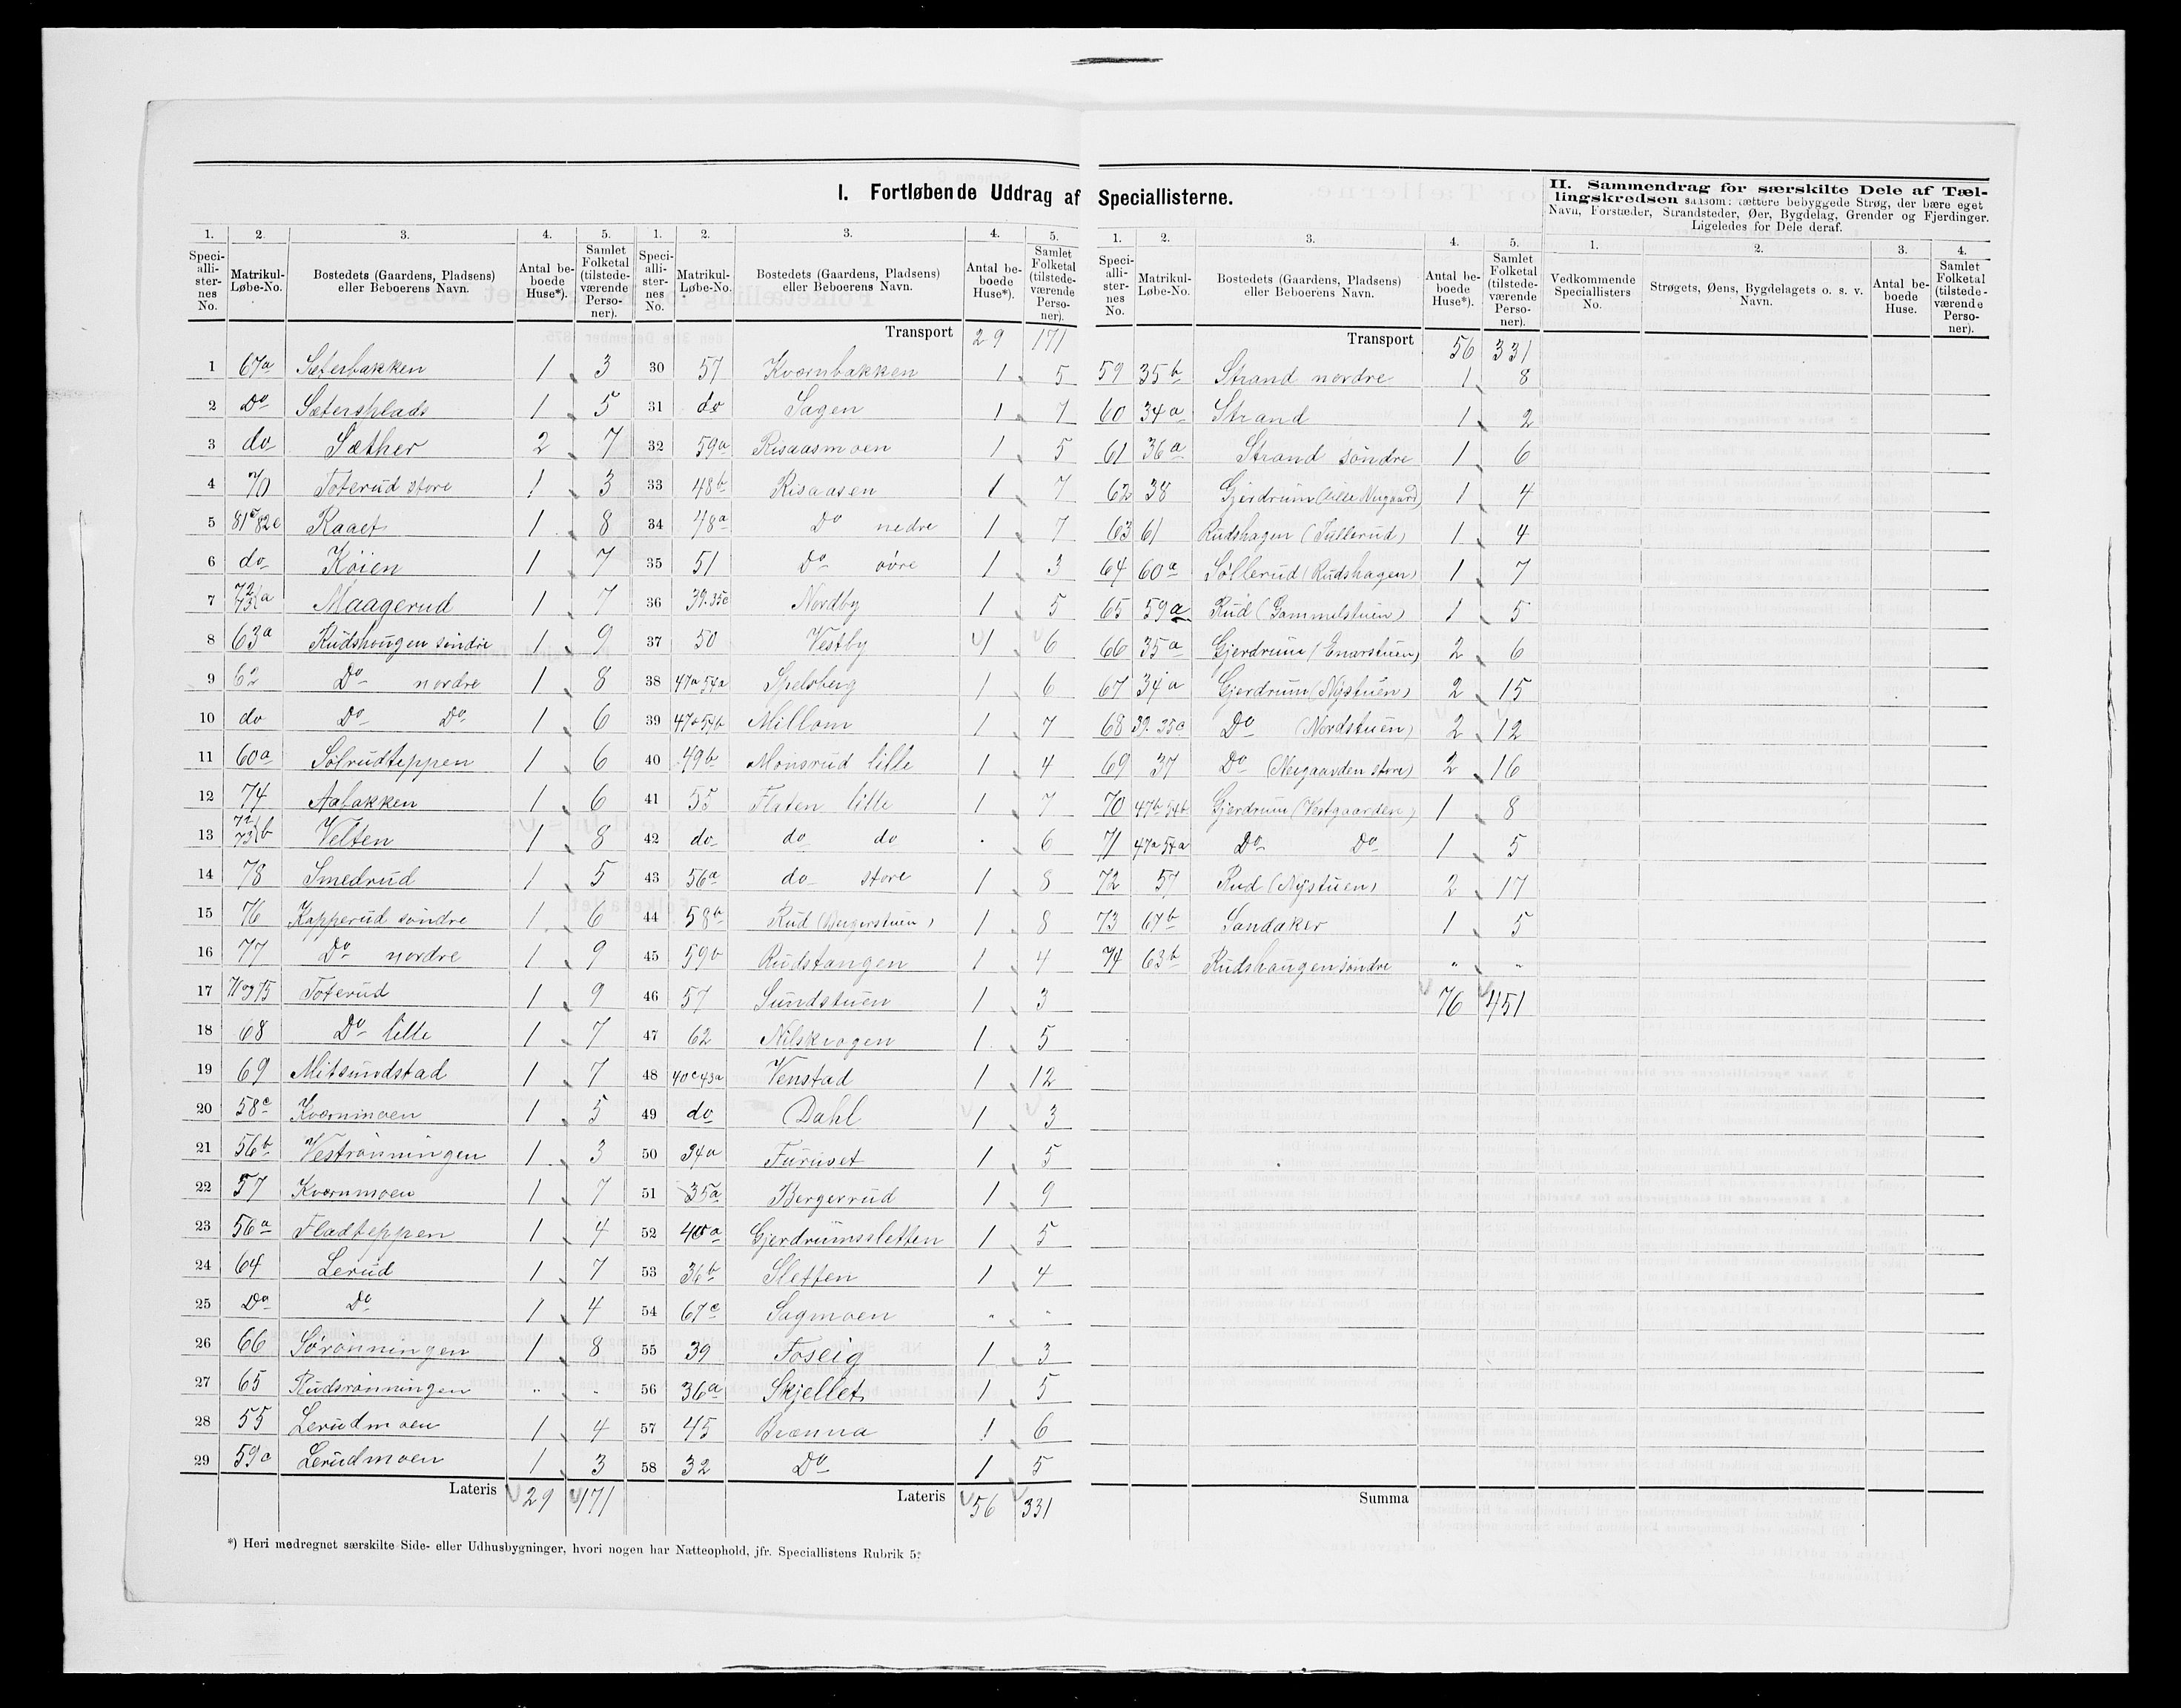 I. Fortløbende Uddrag af Speciallisterne.
1. Speciallisternes No. | 2. Matrikul-Løbe-No. | 3. Bostedets (Gaardens, Pladsens) eller Beboerens Navn. | 4. Antal beboede Huse*). | 5. Samlet Folketal (tilstedeværende Personer).
1 67a Sæterbakken 1 3
2 Do Sætersplads 1 5
3 do Sæther 2 7
4 70 Toterud store 1 3
5 81c 82c Raaet 1 8
6 do Köien 1 7
7 72/73 a Maagerud 1 7
8 63a Rudshougen söndre 1 9
9 62 Do nordre 1 8
10 do Do Do 1 6
11 60a Solrudteppen 1 6
12 74 Aabakken 1 6
13 72/73 b Velten 1 8
14 78 Smedrud 1 5
15 76 Kapperud söndre 1 6
16 77 Do nordre 1 9
17 71 og 75 Toterud 1 9
18 68 Do lille 1 7
19 69 Mitsundstad 1 7
20 58c Kværnmoen 1 5
21 56b Veströnningen 1 3
22 57 Kværnmoen 1 7
23 56a Fladteppen 1 4
24 64 Lerud 1 7
25 Do Do 1 4
26 66 Sörönningen 1 8
27 65 Rudsrönningen " -
28 55 Lerudmoen 1 4
29 59a Lerudmoen 1 3
Lateris 29 171
1. Speciallisternes No. | 2. Matrikul-Løbe-No. | 3. Bostedets (Gaardens, Pladsens) eller Beboerens Navn. | 4. Antal beboede Huse*). | 5. Samlet Folketal (tilstedeværende Personer).
Transport 29 171
30 57 Kværnbakken 1 5
31 do Sagen 1 7
32 59a Risaasmoen 1 5
33 48b Risaasen 1 7
34 48a Do nedre 1 7
35 51 Do övre 1 3
36 39. 35c Nordby 1 5
37 50 Vestby 1 6
38 47a 54a Spelsberg 1 6
39 47b 54b Millom 1 7
40 49b Monsrud lille 1 4
41 55 Flaten lille 1 7
42 do do do . 6
43 56a do store 1 8
44 58b Rud 1 8
45 59b Rudstangen 1 4
46 57 Sundstuen 1 3
47 62 Nilskrogen 1 5
48 40c 43a Venstad 1 12
49 do Dahl 1 3
50 34a Furuset 1 5
51 35a Bergerrud 1 9
52 40a Gjerdrumssletten 1 5
53 36b Sletten 1 4
54 67c Sagmoen " "
55 39 Foseig 1 3
56 36a Skjellet 1 5
57 45 Brænna 1 6
58 32 Do 1 5
Lateris 56 331
1. Speciallisternes No. | 2. Matrikul-Løbe-No. | 3. Bostedets (Gaardens, Pladsens) eller Beboerens Navn. | 4. Antal beboede Huse*). | 5. Samlet Folketal (tilstedeværende Personer).
Transport 56 331
59 35b Strand nordre 1 8
60 34a Strand 1 2
61 36a Strand söndre 1 6
62 38 Gjerdrum (lille Neugaard) 1 4
63 61 Rudshagen (Tullerud) 1 4
64 60a Söllerud (Rudshagen) 1 7
65 59a Rud (Gammelstuen) 1 5
66 35a Gjerdrum (Enarstuen) 2 6
67 34a Gjerdrum (Nystuen) 2 15
68 39. 35c Do (Nordstuen) 2 12
69 37 Do (Neugaarden store) 2 16
70 47b 54b Gjerdrum (Vestgaarden) 1 8
71 47a 54a Do Do 1 5
72 57 Rud (Nystuen) 2 17
73 67b Sandaker 1 5
74 63b Rudshaugen söndre " "
76 451
Summa
II. Sammendrag for særskilte Dele af Tællingskredsen saasom: tættere bebyggede Strøg, der bære eget Navn, Forstæder, Strandsteder, Øer, Bygdelag, Grender og Fjerdinger. Ligeledes for Dele deraf.
1. Vedkommende Speciallisters No. | 2. Strøgets, Øens, Bygdelagets o. s. v. Navn. | 3. Antal beboede Huse. | 4. Samlet Folketal (tilstedeværende Personer).
*) Heri medregnet særskilte Side- eller Udhusbygninger, hvori nogen har Natteophold, jfr. Speciallistens Rubrik 5.